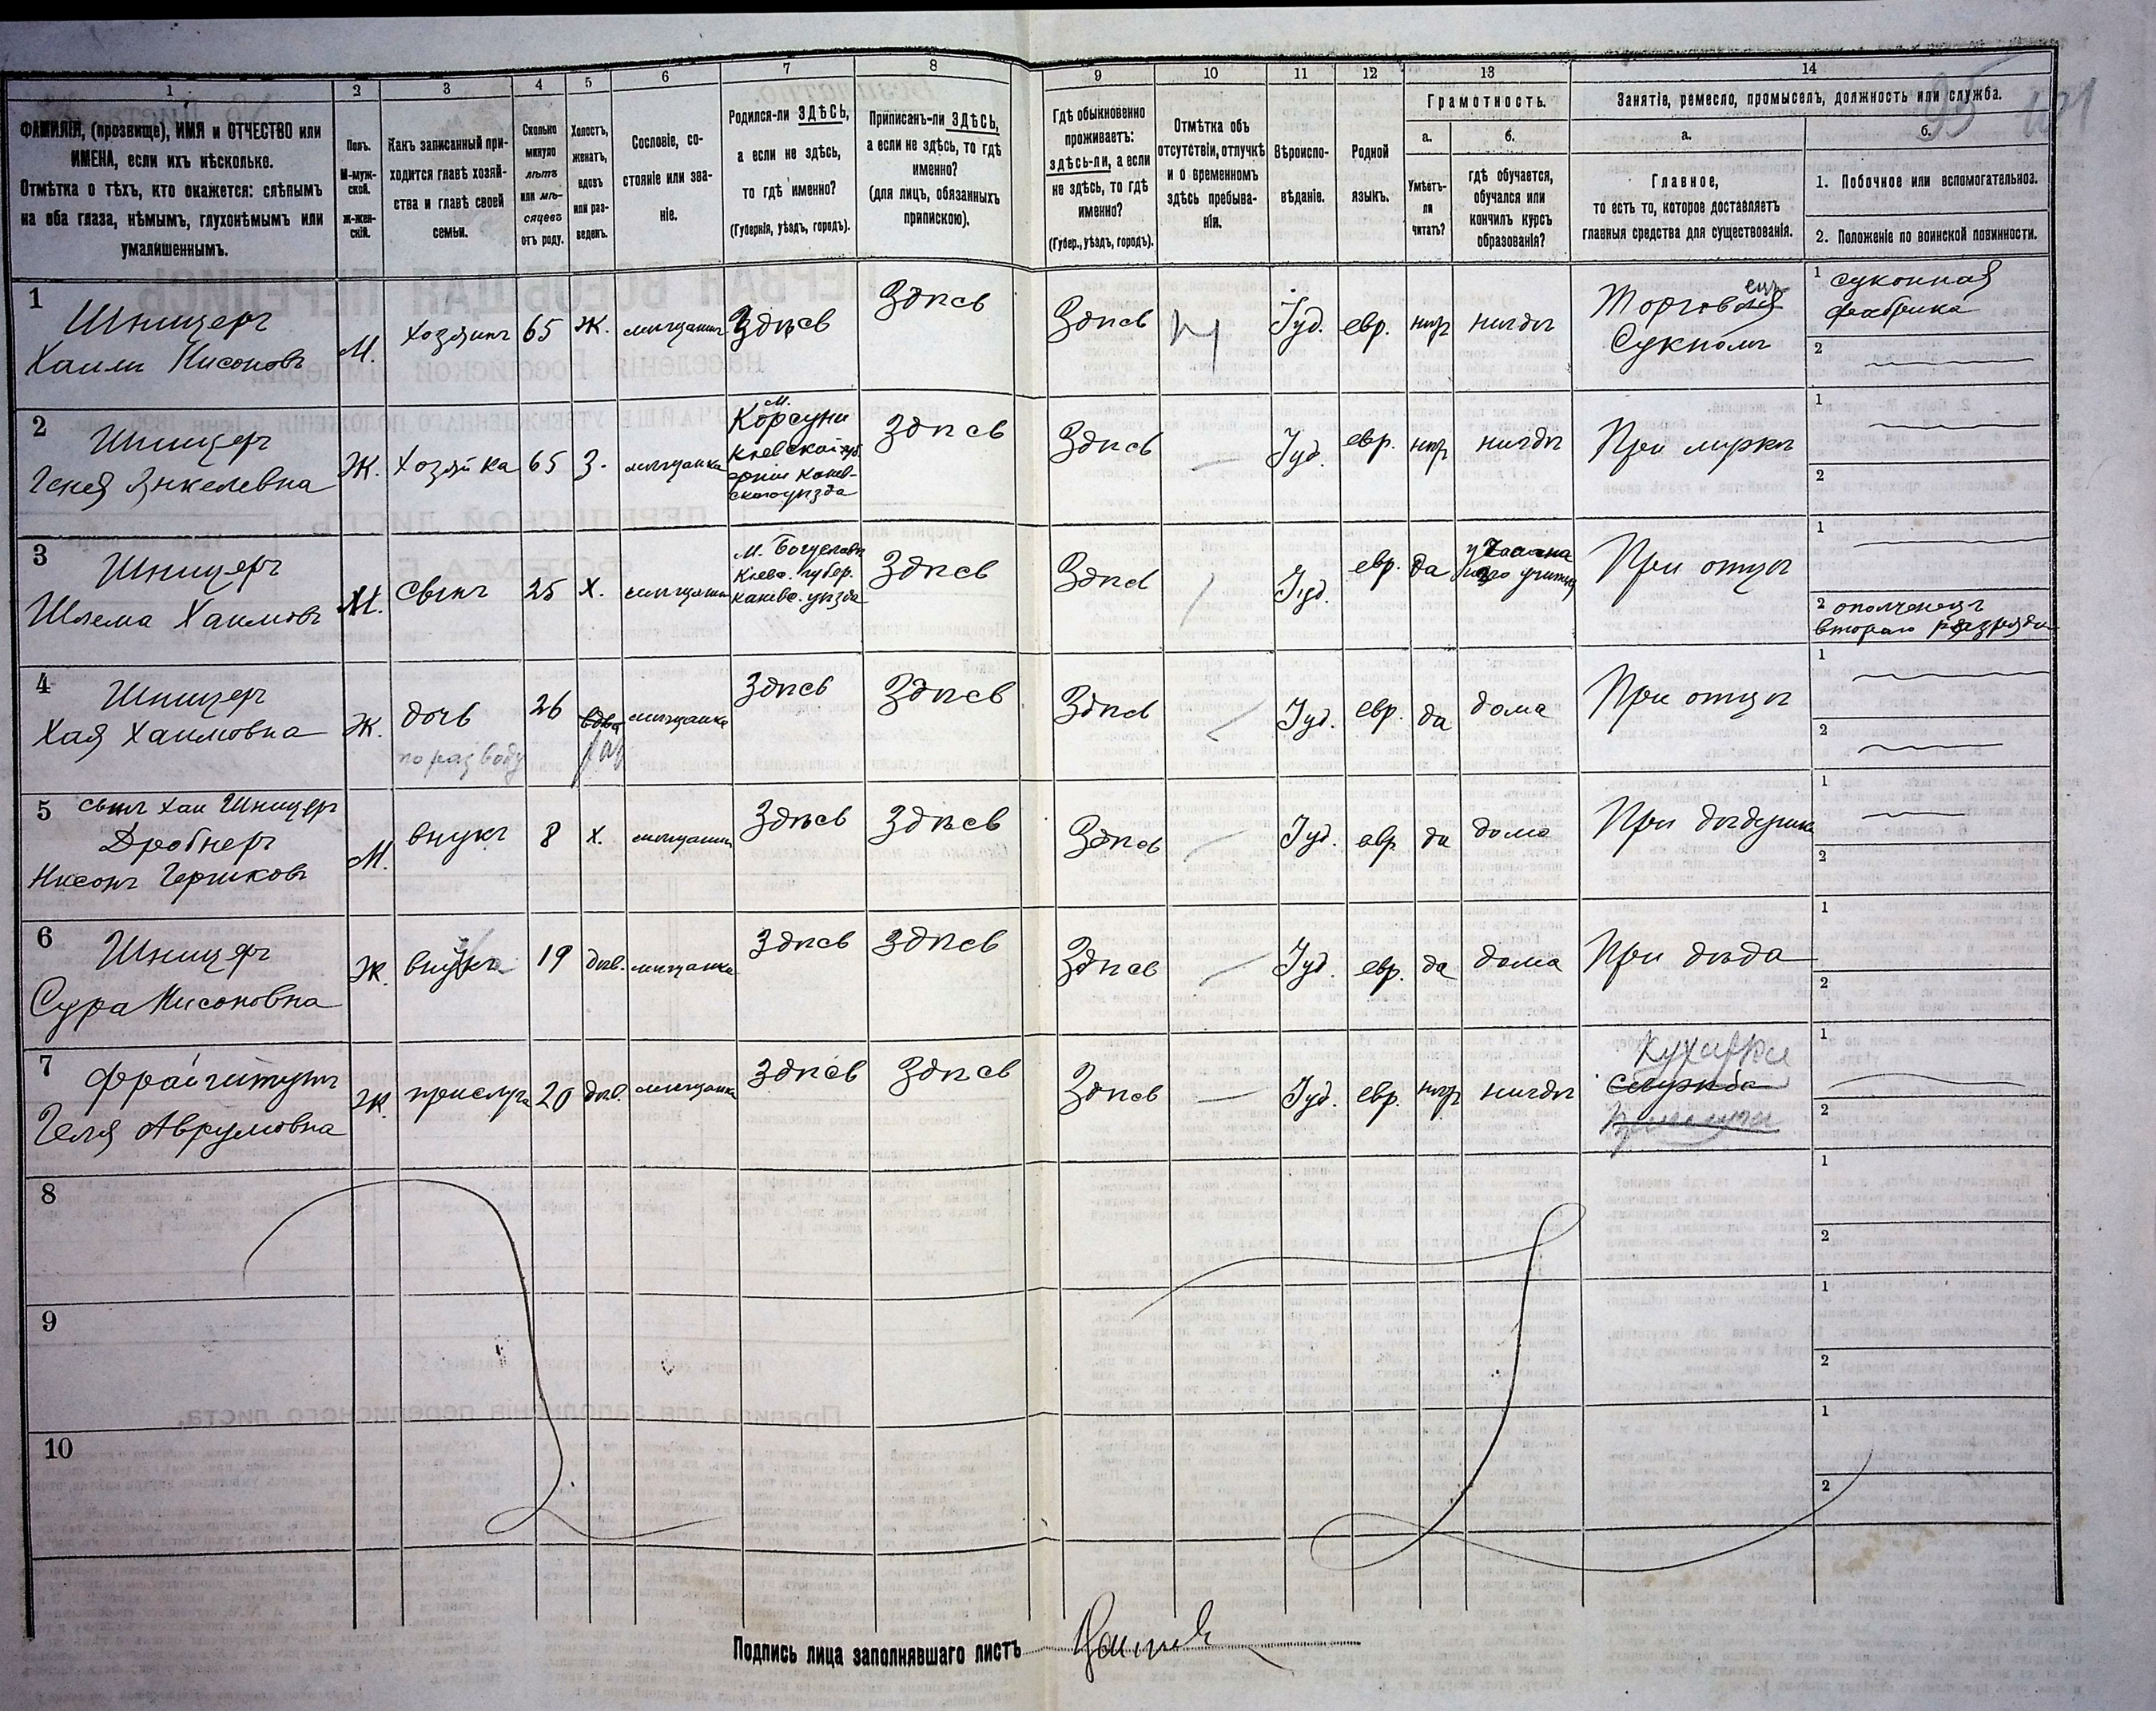 1
2
3
4
5
6
7
8
9
10
11
12
13
14
95
101
ФАМИЛІЯ, (прозвище), ИМЯ и ОТЧЕСТВО или
ИМЕНА, если ихъ нѣсколько.
Отмѣтка о тѣхъ, кто окажется: слѣпымъ
на оба глаза, нѣмымъ, глухонѣмымъ или
умалишеннымъ.
Полъ.
М-муж-
ской.
ж-жен-
скій.
Какъ записанный при-
ходится главѣ хозяй-
ства и главѣ своей
семьи.
Сколько
минуло
лѣтъ
или мѣ-
сяцевъ
отъ роду.
Холостъ,
женатъ,
вдовъ
или раз-
веденъ.
Сословіе, со-
стояніе или зва-
ніе.
Родился-ли ЗДѢСЬ,
а если не здѣсь,
то гдѣ именно?
(Губернія, уѣздъ, городъ).
Приписанъ-ли ЗДѢСЬ,
а если не здѣсь, то гдѣ
именно?
(для лицъ, обязанныхъ
припискою).
Гдѣ обыкновенно
проживаетъ:
здѣсь-ли, а если
не здѣсь, то гдѣ
именно?
(Губер., уѣздъ, городъ).
Отмѣтка объ
отсутствіи, отлучкѣ
и о временномъ
здѣсь пребыва-
ніи.
Вѣроиспо-
вѣданіе.
Родной
языкъ.
Грамотность.
а.
Умѣетъ-
ли
читать?
б.
гдѣ обучается,
обучался или
кончилъ курсъ
образованія?
Занятіе, ремесло, промыселъ, должность или служба.
а.
Главное,
то есть то, которое доставляетъ
главныя средства для существованія.
б.
1. Побочное или вспомогательное.
2. Положеніе по воинской повинности.
1
Шницеръ
Хаимъ Нисоновъ
М.
хозяинъ
65
Ж.
мѣщанинъ
Здѣсь
Здѣсь
Здѣсь
Іуд.
евр.
нѣтъ
нигдѣ
Торговля
Сукномъ
1 суконная
фабрика
2
2
Шницеръ
Генея Янкелевна
Ж.
хозяйка
65
З.
мѣщанка
м.
Корсуни
Кіевской губ-
ерніи Канев-
скаго уѣзда
Здѣсь
Здѣсь
Іуд.
евр.
нѣтъ
нигдѣ
При мужѣ
1
2
3
Шницеръ
Шлема Хаимовъ
М.
сынъ
25
Х.
мѣщанинъ
м. Богуславъ
Кіевс. губер.
Каневс. уѣзда
Здѣсь
Здѣсь
Іуд.
евр.
да
При отцѣ
1
2 ополченецъ
втораго разряда
4
Шницеръ
Хая Хаимовна
Ж.
дочь
по разводу
26
вдова
раз
мѣщанка
Здѣсь
Здѣсь
Здѣсь
Іуд.
евр.
да
дома
При отцѣ
1
2
5
сынъ Хаи Шницеръ
Дробнеръ
Нисонъ Гершковъ
М.
внукъ
8
х.
мѣщанинъ
Здѣсь
Здѣсь
Здѣсь
Іуд.
евр.
да
дома
При дѣдушкѣ
1
2
6
Шницеръ
Сура Нисоновна
Ж.
внучка
19
дѣв.
мѣщанка
Здѣсь
Здѣсь
Здѣсь
Іуд.
евр.
да
дома
При дѣда
1
2
7
Геля Аврумовна
Ж.
прислуга
20
дѣв.
мѣщанка
Здѣсь
Здѣсь
Здѣсь
Іуд.
евр.
нѣтъ
нигдѣ
Кухарка
служба
1
2
8
1
2
9
1
2
10
1
2
Подпись лица заполнявшаго листъ